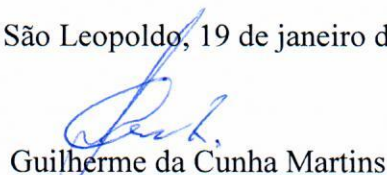 São Leopoldo, 19 de janeiro d
Guilherme da Cunha Martins